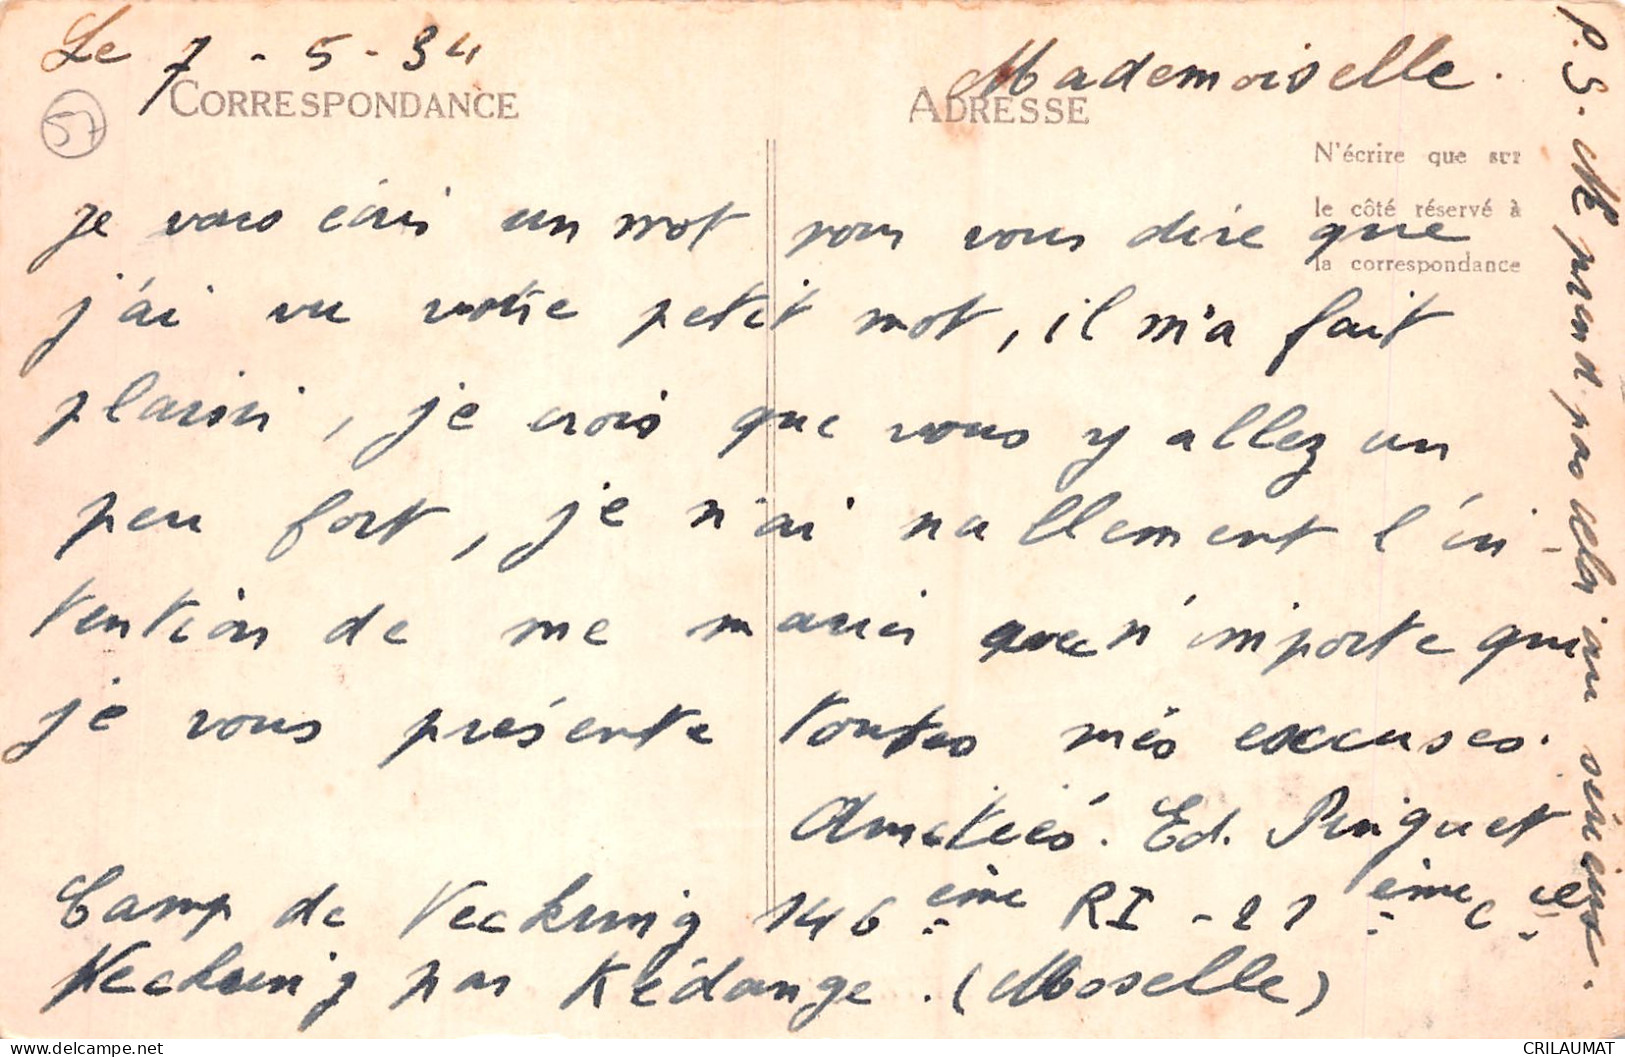 Le 7 - 5 - 34
57
CORRESPONDANCE
Mademoiselle.
ADRESSE
N'écrire que sur
le côté réservé à
la correspondance
je vous écris un mot pour vous dire que
j'ai vu votre petit mot, il m'a fait
plaisir, je crois que vous y allez un
peu fort, je n'ai nullement l'in-
tention de me marier avec n'importe qui
je vous présente toutes mes excuses.
Amitiés. Ed. Pinguet
Camp de Veckring 146 ème RI - 21 ème Cie
Veckring par Kédange. (Moselle)
P.S. Ne prend pas cela au sérieux.
delcampe.net
CRILAUMAT